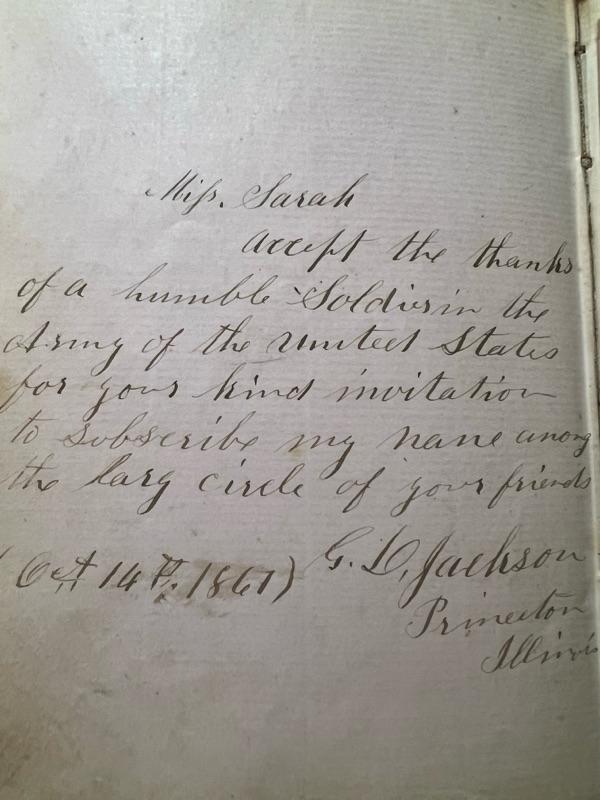 Miss. Sarah
Accept the thanks
of a humble Soldier in the
Army of the United States
for your kind invitation
to subscribe my name among
the larg circle of your friends
G. D. Jackson
(Oct 14th, 1861)
Princeton
Illinois